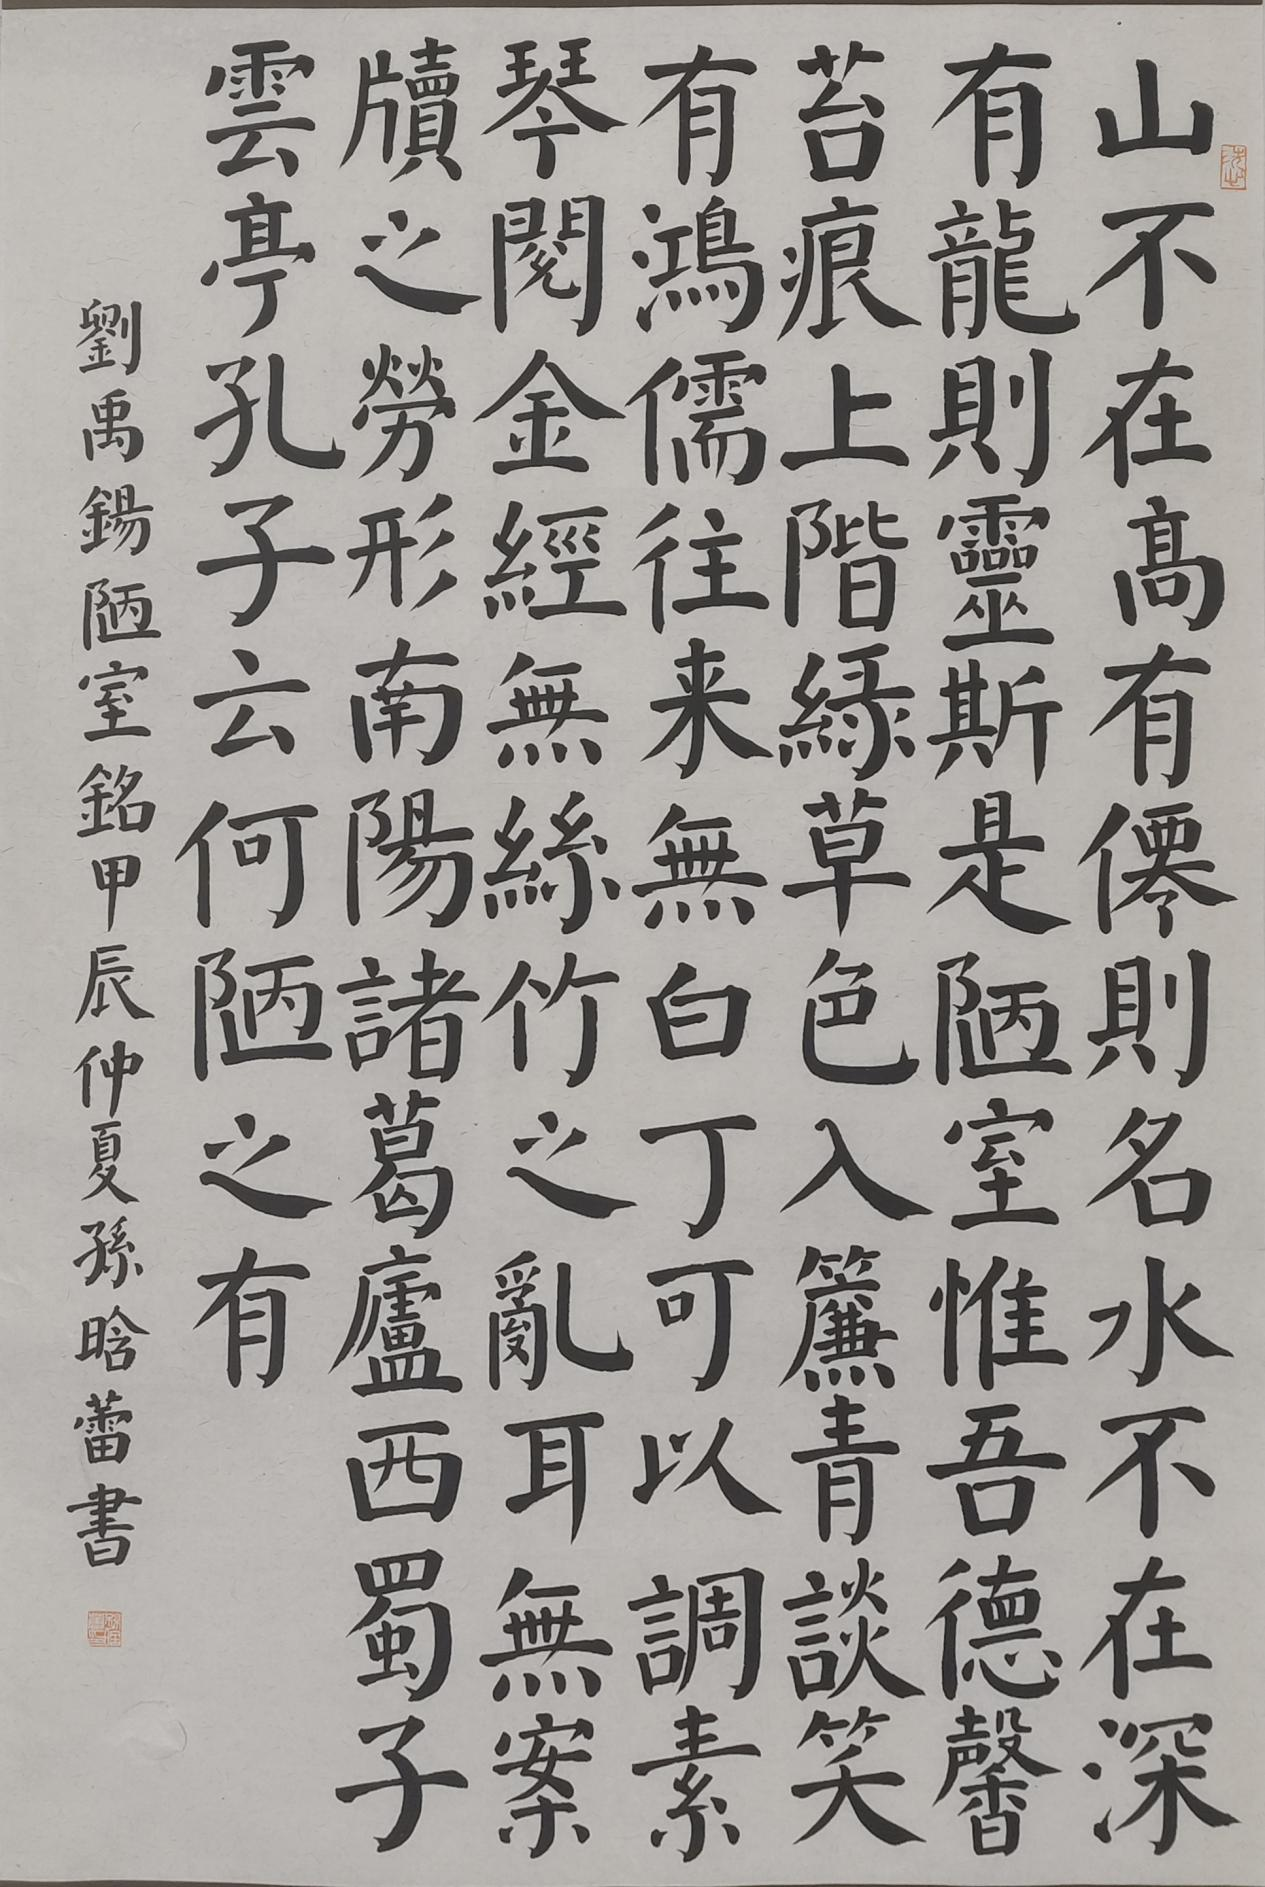 山不在高有僊則名水不在深
有龍則靈斯是陋室惟吾德馨
苔痕上階緑草色入簾青談笑
有鴻儒往来無白丁可以調素
琴閱金經無絲竹之亂耳無案
牘之勞形南陽諸葛廬西蜀子
雲亭孔子云何陋之有
劉禹錫陋室銘甲辰仲夏孫晗蕾書